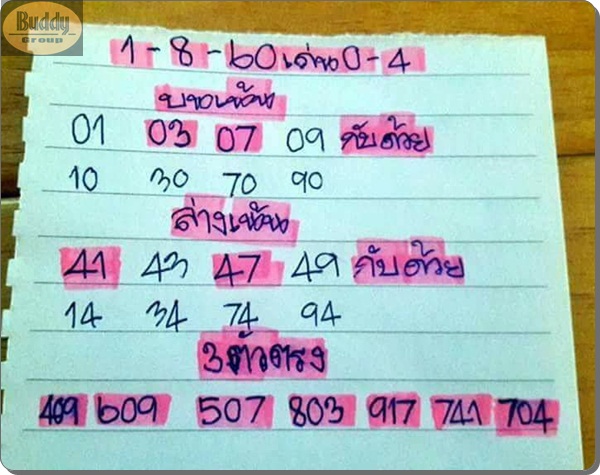 Buddy
Group
1-8-60เด่น0-4
บนเน้น
01 03 07 09 กับด้วย
10 30 70 90
ล่างเน้น
41 43 47 49 กับด้วย
14 34 74 94
3ตัวตรง
409 609 507 803 917 741 704